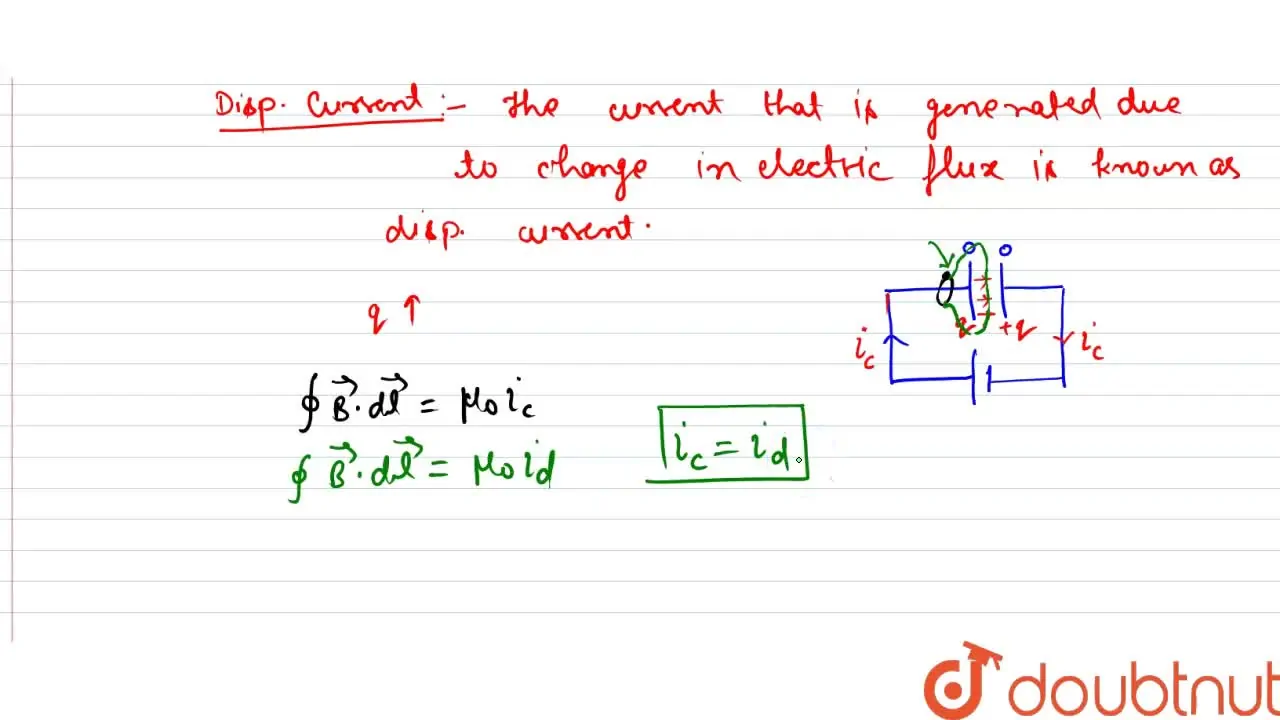 Disp. Current :- The current that is generated due
to change in electric flux is known as
disp. current.
q ↑
q +q
i_c i_c
∮ B⃗ · dl⃗ = μ₀ i_c
∮ B⃗ · dl⃗ = μ₀ i_d
i_c = i_d.
doubtnut